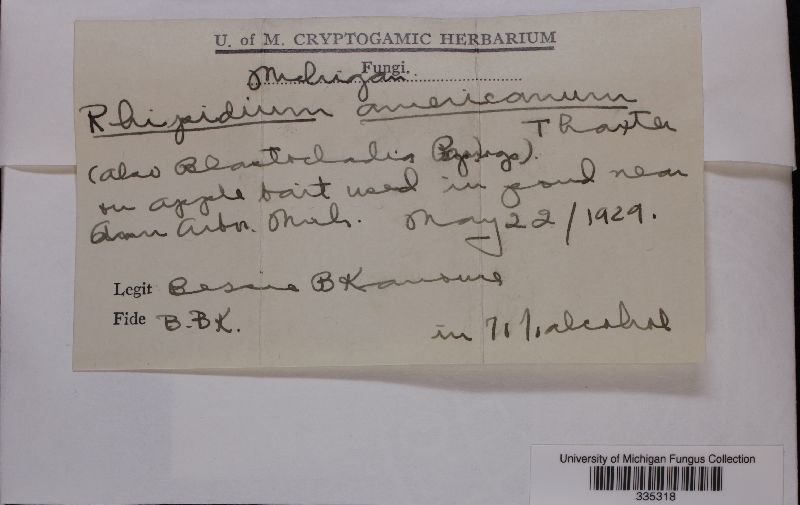 U. of M. CRYPTOGAMIC HERBARIUM
Fungi.
Michigan
Rhipidium americanum
Thaxter
(also Blastocladia
on apple bait used in pond near
Ann Arbor. Mich. May 22/1929.
Legit Bessie B Kanouse
Fide B.BK.
in % alcohol
University of Michigan Fungus Collection
335318